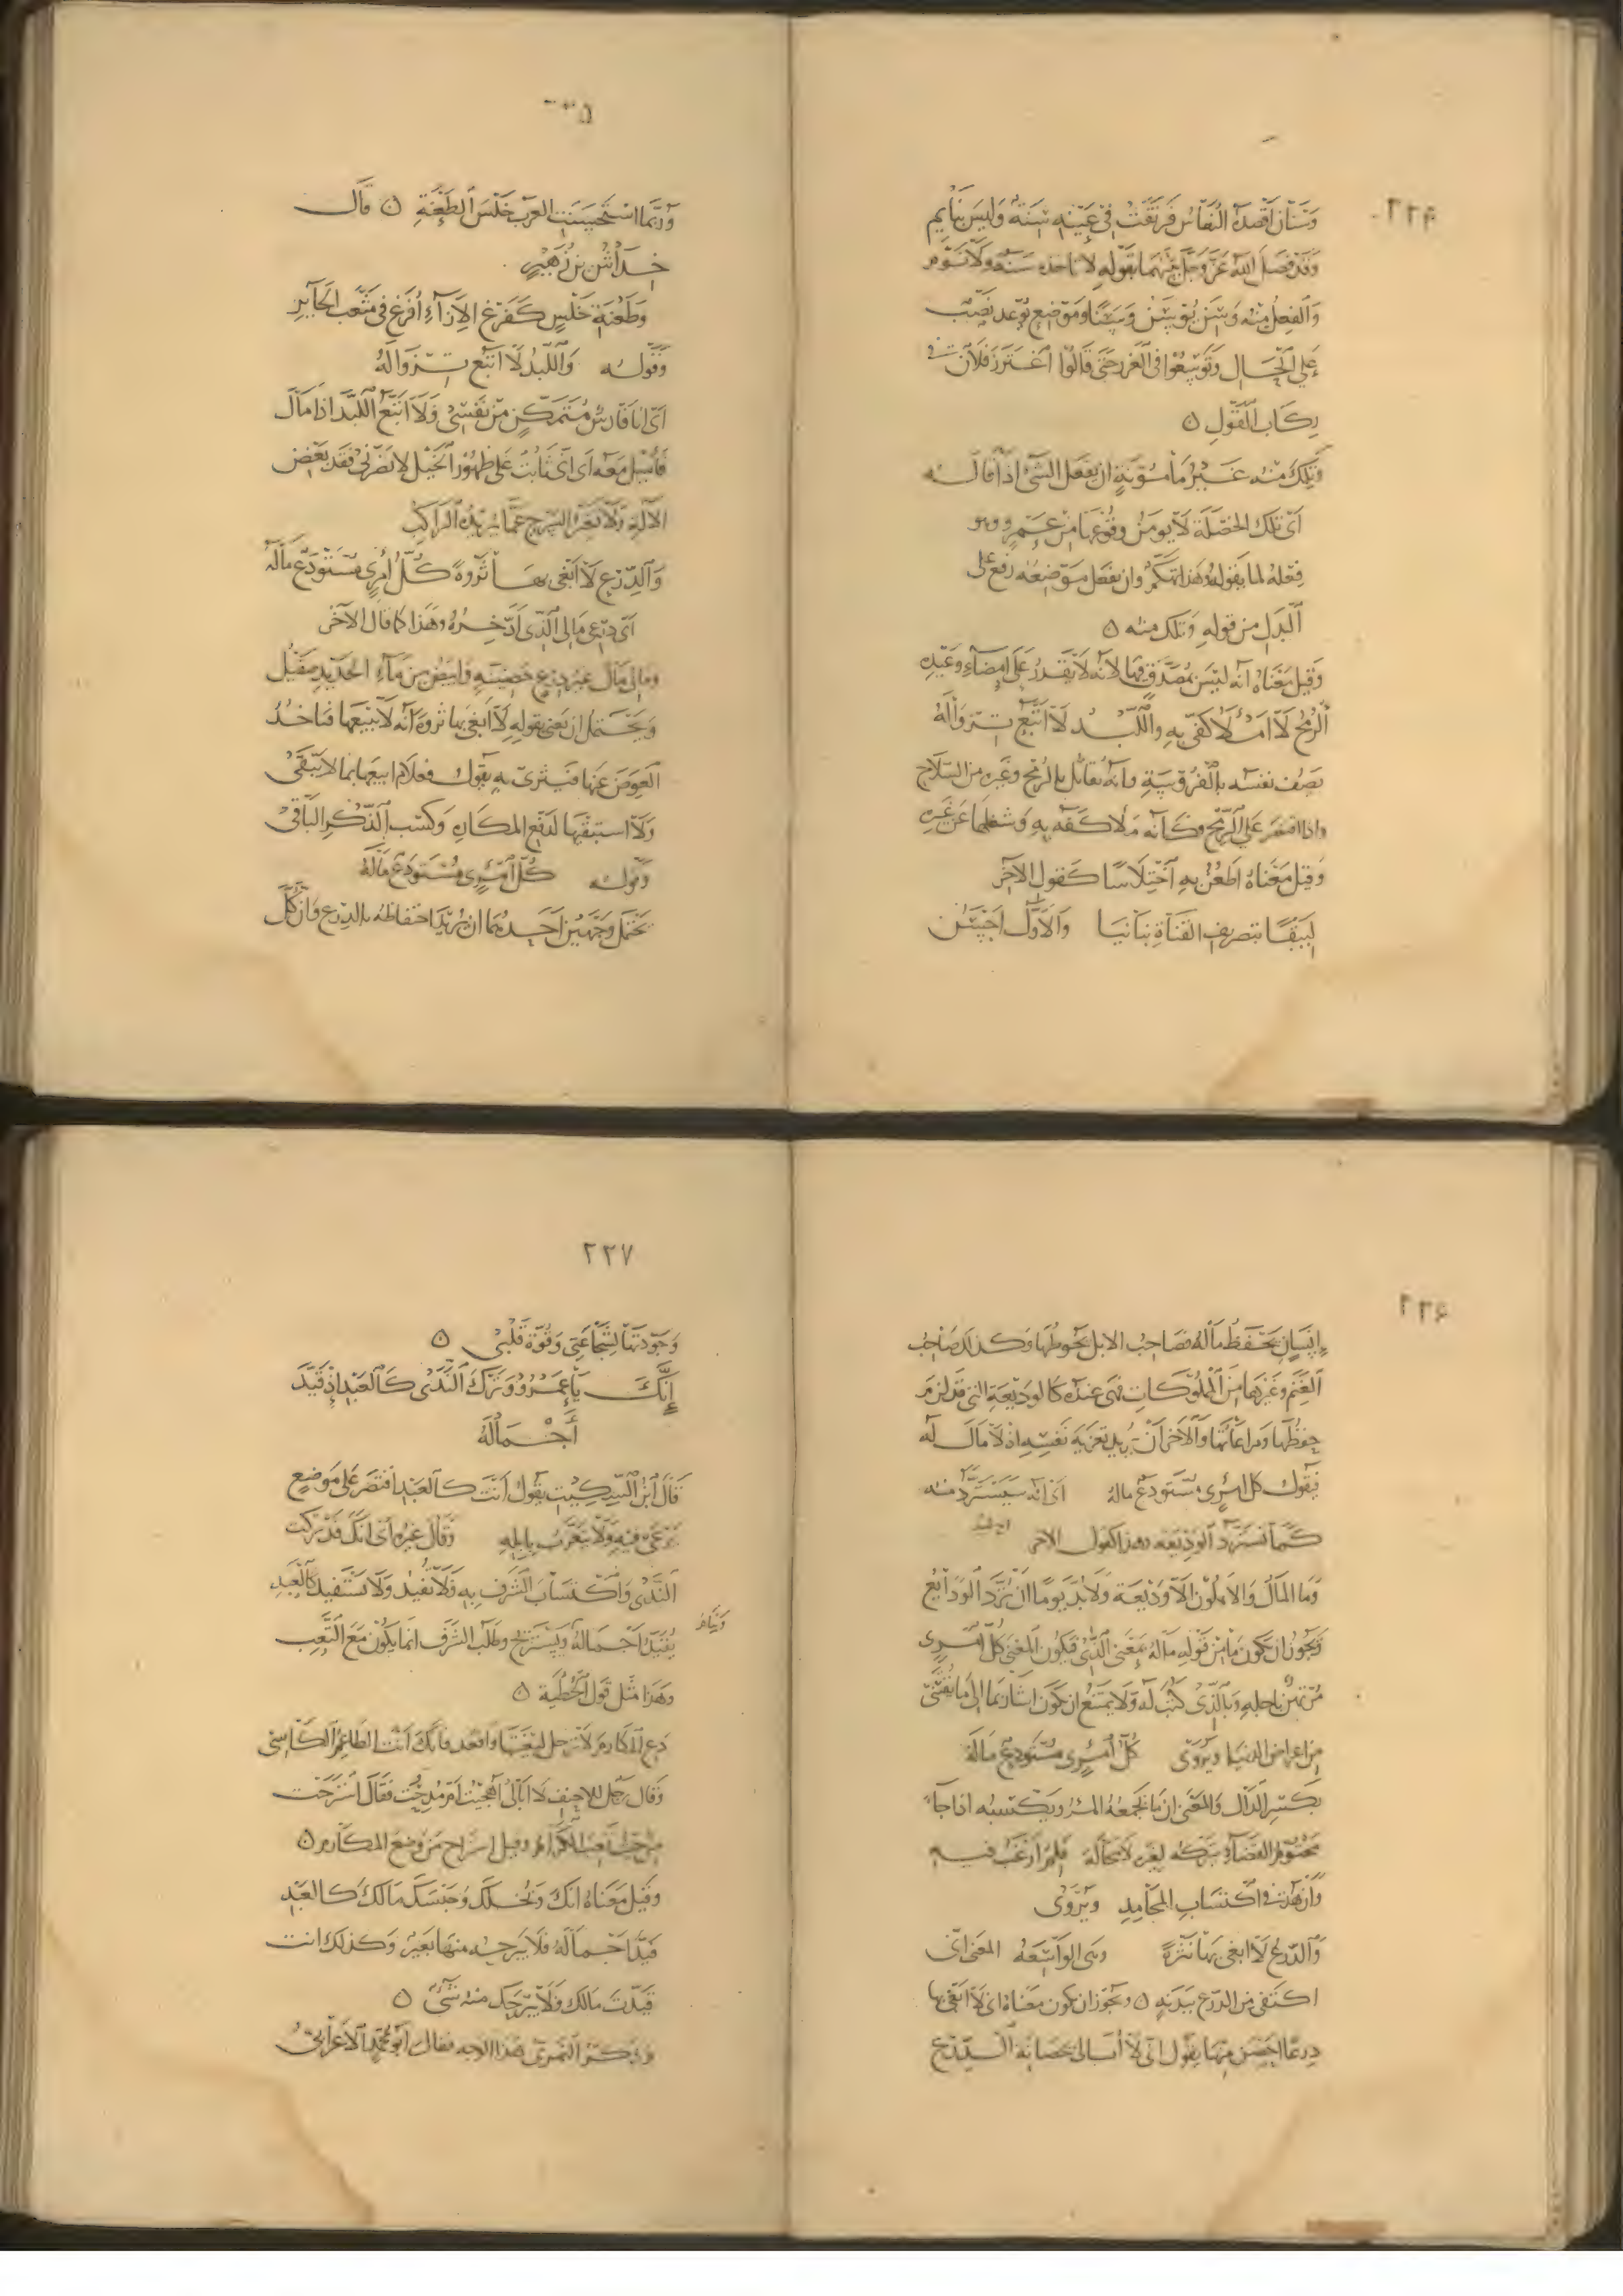 ٢٢٤
وَسْنَانُ أَقْصَدَهُ النُّعَاسُ فَرَنَّقَتْ فِي عَيْنِهِ سِنَةٌ وَلَيْسَ بِنَائِمِ
وقد فصل الله عز وجل بينهما بقوله لا تاخذه سنة ولا نوم
والفعل منه وسن يوسن وسنا وموضع يوعد نصب
على الحال وتوسعوا في الغرر حتى قالوا اغترز فلان في
ركاب القول ه
وتلك منه غير مأمونة ان يفعل الشئ اذا قاله
اى تلك الخصلة لا يومن وقوعها من عمرو وهو
فعله لما يقوله وهذا تهكم وان يفعل موضعه رفع على
البدل من قوله وتلك منه ه
وقيل معناه انه ليس بمصدق فيها لانه لا يقدر على امضاء وعيده
الرمح لا املأ كفى به واللبد لا اتبع تزواله
يصف نفسه بالفروسية وانه يقاتل بالرمح وغيره من السلاح
واذا اقتصر على الرمح فكأنه ملأ كفه به وشغلها عن غيره
وقيل معناه اطعن به اختلاسا كقول الآخر
لبيقا بتصريف القناة بنانيا والاول احسن
وربما استحسنت العرب خلس الطعنة ه قال
خداش بن زهير
وطعنة خلس كفرغ الازاء افرغ في مثعب الحاير
وقوله واللبد لا اتبع تزواله
اى انا فارس متمكن من نفسى ولا اتبع اللبد اذا مال
فأميل معه اى انى ثابت على ظهور الخيل لا يضرنى فقد بعض
الآلة ولا تغير السرج عما يريده الراكب
والدرع لا ابغى بها ثروة كل امرئ مستودع ماله
اى درعى مالى الذى ادخره وهذا كما قال الآخر
ومالى مال غير درع حصينة وابيض من ماء الحديد صقيل
ويحتمل ان يعنى بقوله لا ابغى بها ثروة انه لا يبيعها فياخذ
العوض عنها فيثرى به يقول فعلام ابيعها بما لا يبقى
ولا استبقيها لدفع المكاره وكسب الذكر الباقى
وقوله كل امرئ مستودع ماله
يحتمل وجهين احدهما ان يريد احتفاظه بالدرع وان كل
٢٢٦
انسان يحفظ ماله فصاحب الابل يحوطها وكذلك صاحب
الغنم وغيرها من المملوكات فهى عنده كالوديعة التى قد لزم
حفظها ومراعاتها والآخر ان يريد تعزية نفسه اذ لا مال له
فيقول كل امرئ مستودع ماله اى انه سيسترد منه
كما تسترد الوديعة وهذا كقول الآخر
وما المال والاهلون الا وديعة ولا بد يوما ان ترد الودايع
ويجوز ان يكون ما من قوله ماله بمعنى الذى فيكون المعنى كل امرئ
مرتهن باجله وبالذى كتب له ولا يمتنع ان يكون اشار بما الى ما يقتنى
من اعراض الدنيا ويروى كل امرئ مستودع ماله
بكسر الدال والمعنى ان ما يجمعه المرء ويكتسبه اذا جاء
محتوم القضاء يتركه لغيره لا محالة فلم ارغب فيه
وازهد في اكتساب المحامد ويروى
والدرع لا ابغى بها نثرة وهى الواسعة المعنى انى
اكتفى من الدرع ببدنه ه ويجوز ان يكون معناه انى لا ابغى بها
درعا احصن منها يقول انى لا ابالى بحصانة الدرع
٢٢٧
وجودتها لشجاعتى وقوة قلبى ه
انك يا عمرو وترك الندى كالعبد اذ قيد
أجماله
قال ابن السكيت يقول انت كالعبد اقتصر على موضع
يرعى فيه ولا يتغرب بابله وقال غيره اى انك قد تركت
الندى واكتساب الشرف به ولا تفيد ولا تستفيد كالعبد
يقيد اجماله ويستريح وطلب الشرف انما يكون مع التعب
وهذا مثل قول الحطية ه
دع المكارم لا ترحل لبغيتها واقعد فانك انت الطاعم الكاسى
وقال رجل للاحنف لا ابالى اهجيت ام مدحت فقال استرحت
من حيث تعب الكرام وقيل استراح من وضع المكارم ه
وقيل معناه انك وبخلك وحبسك مالك كالعبد
قيد اجماله فلا يبرحه منها بعير وكذلك انت
قيدت مالك ولا يبرحك منه شئ ه
وذكر النمرى هذا الوجه فقال ابو محمد الاعرابى